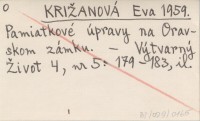 O
KRIŽANOVÁ Eva 1959.
Pamiatkové úpravy na Orav-
skom zámku. – Výtvarný
Život 4, nr 5: 179–183, il.